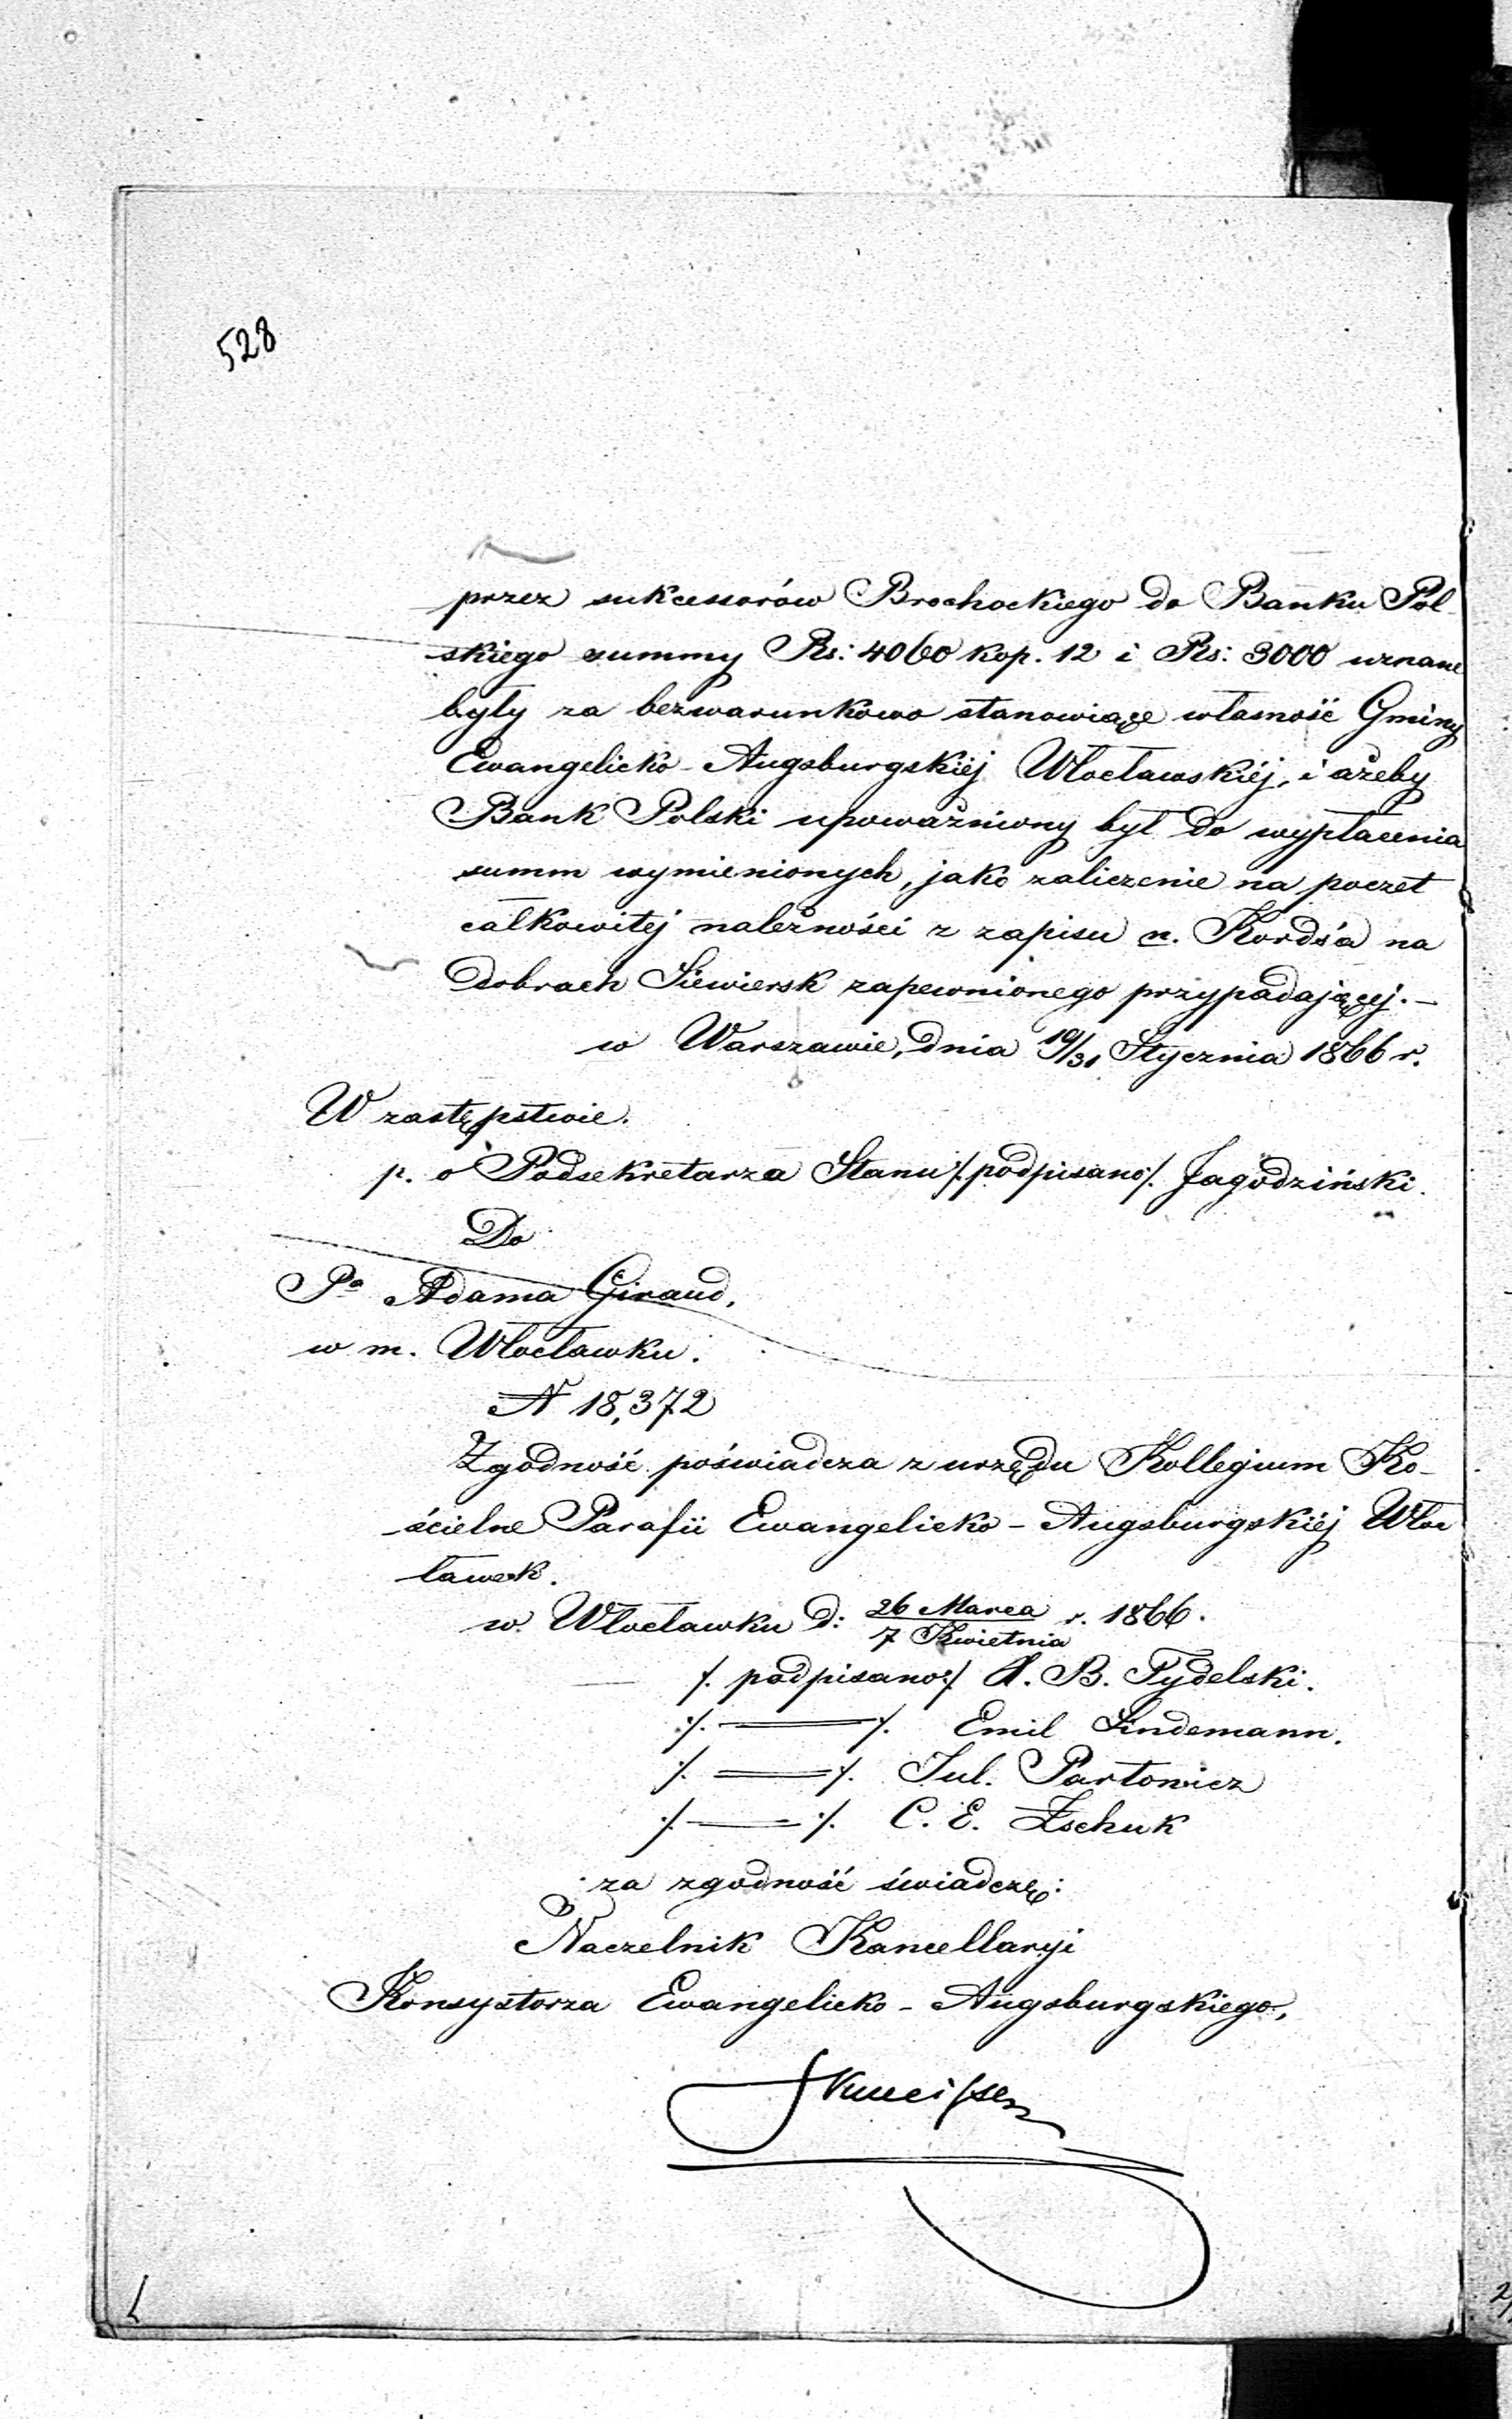 528
przez sukcessorów Brochockiego do Banku Pol-
skiego summy Rs: 4060 kop. 12 i Rs: 3000 uznane
były za bezwarunkowo stanowiące własność Gminy
Ewangelicko-Augsburgskiéj Włocławskiéj, i ażeby
Bank Polski upoważniony był do wypłacenia
summ wymienionych, jako zaliczenie na poczet
całkowitéj należności z zapisu n. Kords'a na
dobrach Siewiersk zapewnionego przypadającéj.—
w Warszawie, dnia 19/31 Stycznia 1866 r.
W zastępstwie.
p. o Podsekretarza Stanu /. podpisano /. Jagodziński.
Do
Pa Adama Giraud,
w m. Włocławku.
N 18,372
Zgodność poświadcza z urzędu Kollegium Ko-
ścielne Parafii Ewangelicko-Augsburgskiéj Włoc
ławek.
w Włocławku d: 26 Marca / 7 Kwietnia r. 1866.
/. podpisano:/. A. B. Tydelski.
:/. ═══ /. Emil Lindemann.
:/. ═══ /. Jul. Partowicz
:/. ═══ :/. C. E. Zschuk
za zgodność świadczę:
Naczelnik Kancellaryi
Konsystorza Ewangelicko-Augsburgskiego,